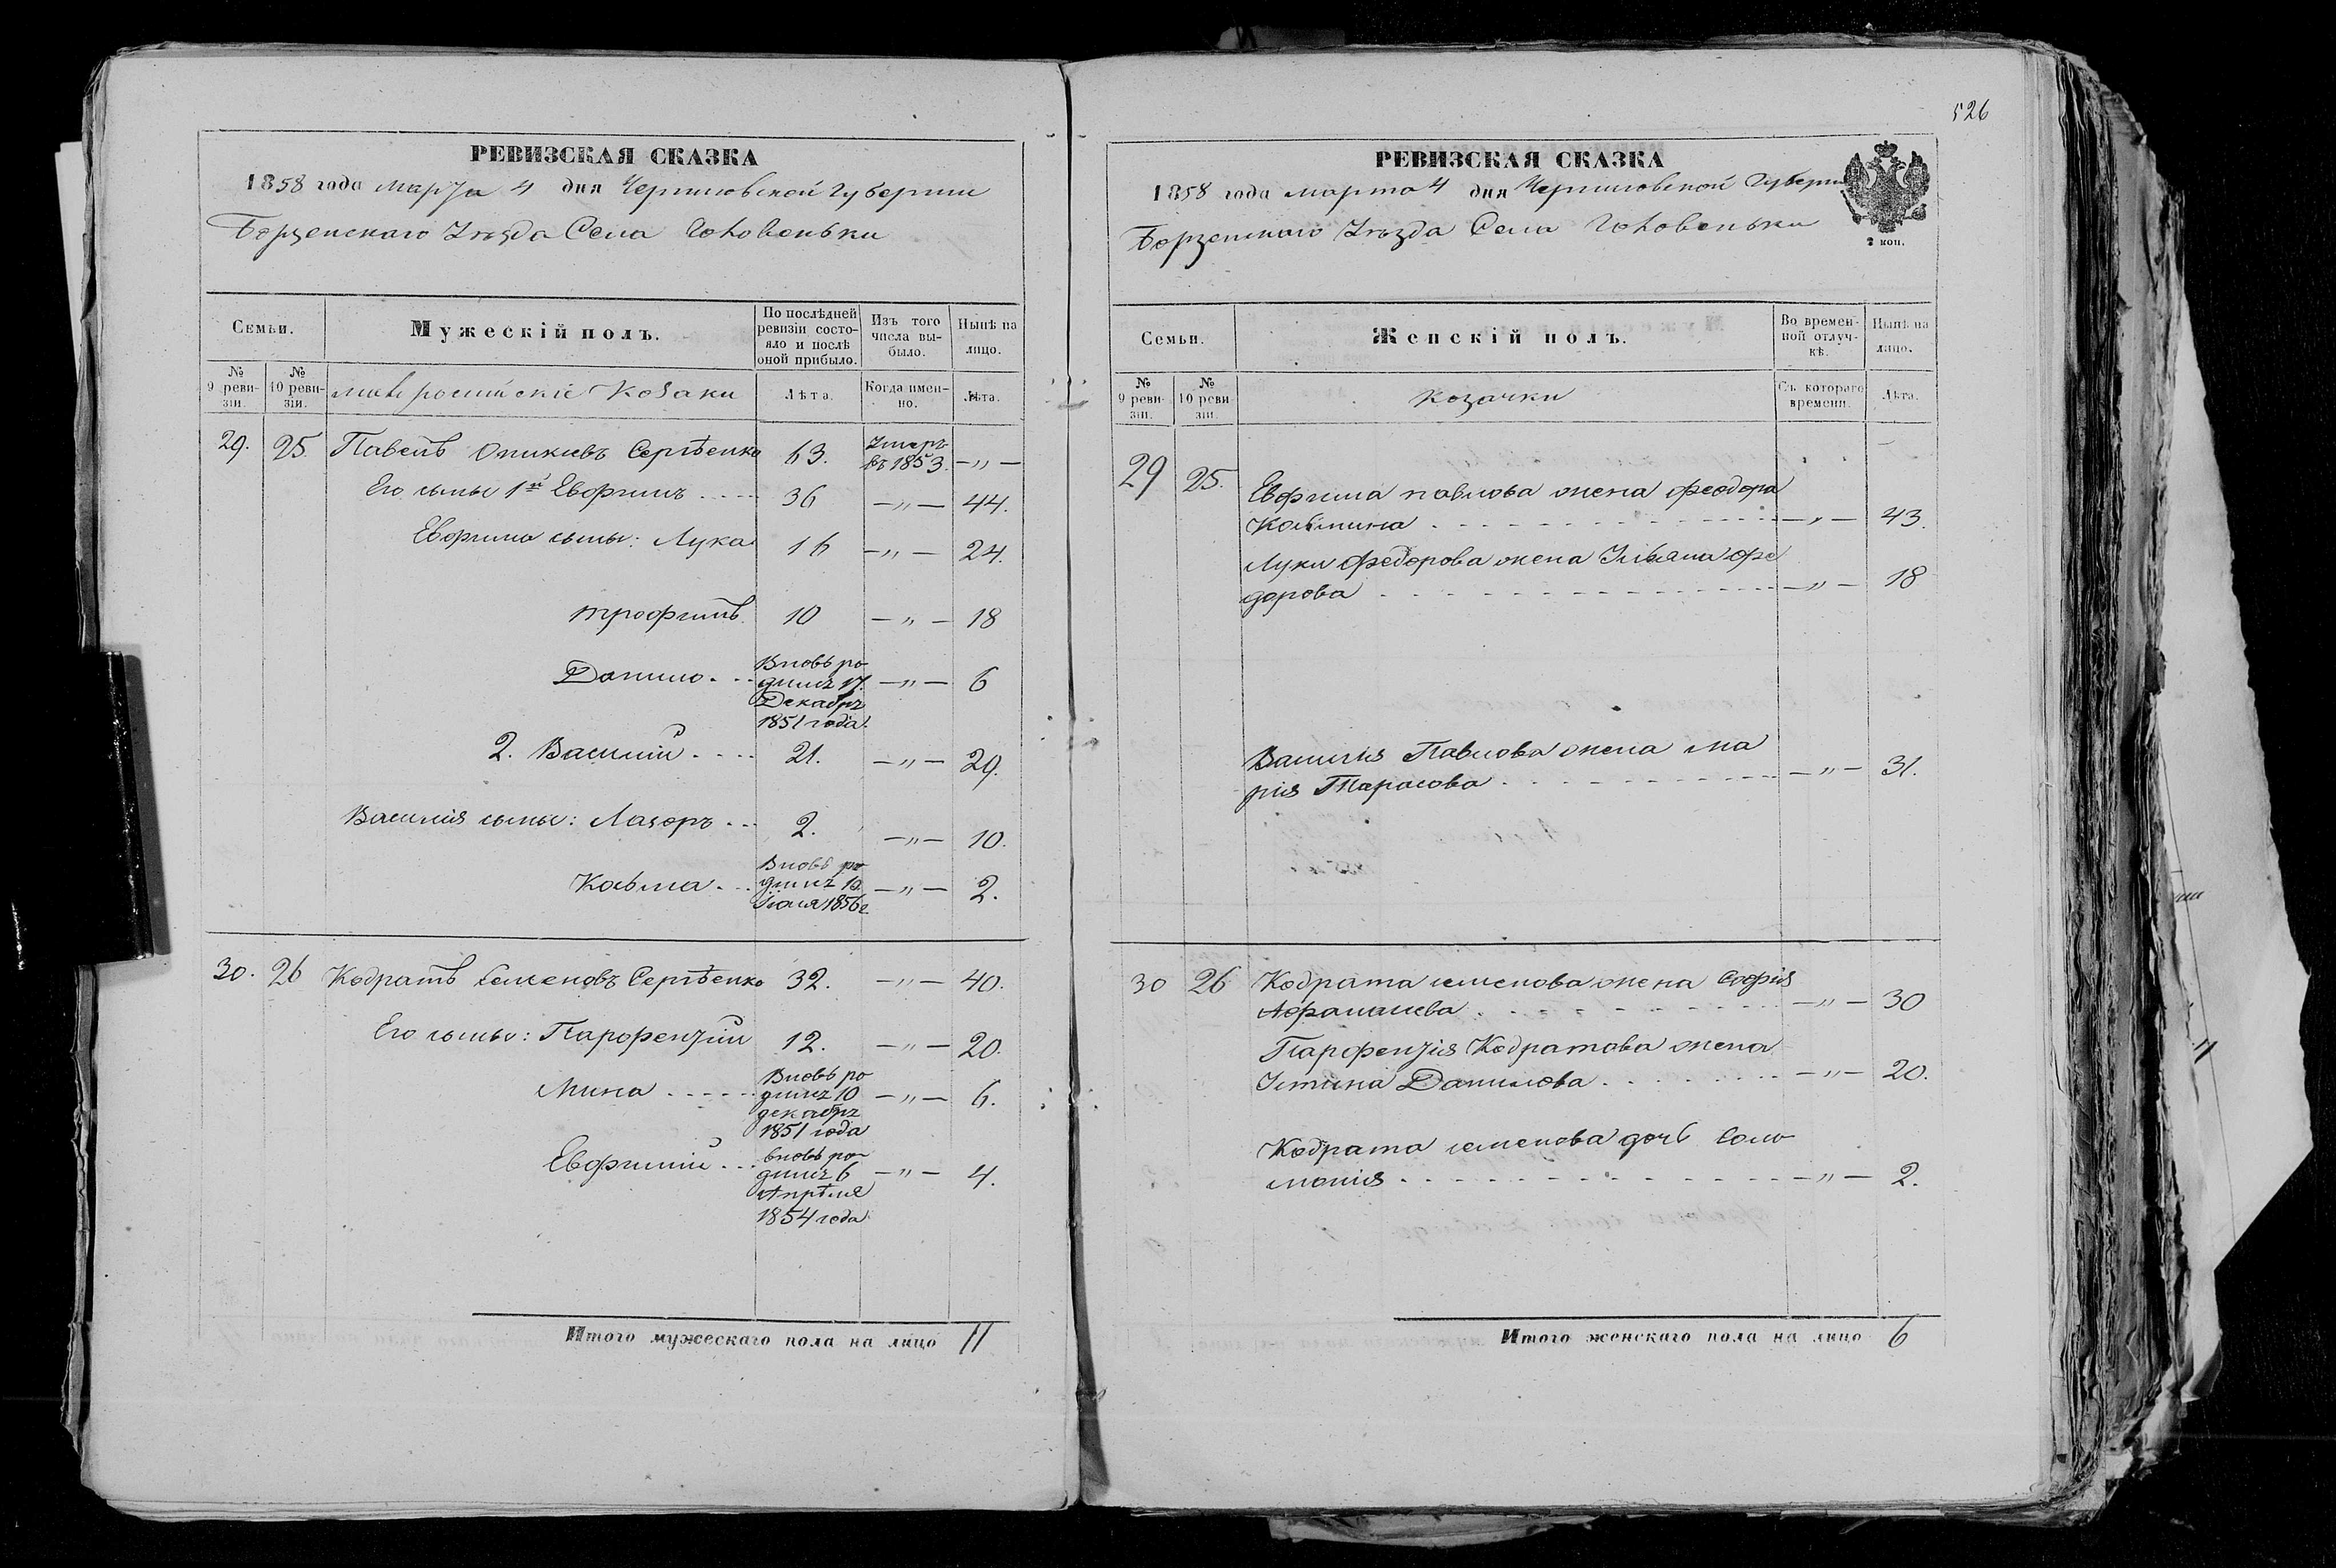 526
РЕВИЗСКАЯ СКАЗКА
1858 года марта 4 дня Черниговской Губернии
Борзенскаго Уезда Села Головеньки
Семьи.
Мужескій полъ.
По послѣдней ревизіи состояло и послѣ оной прибыло.
Изъ того числа выбыло.
Нынѣ на лицо.
№ 9 ревизіи.
№ 10 ревизіи.
малоросийскіе Козаки
Лѣта.
Когда именно.
Лѣта.
29. 25. Павелъ Оникиевъ Сергѣенко 63. Умеръ въ 1853. —„—
Его сыны 1й Евфимъ 36 —„— 44.
Евфима сыны: Лука 16 —„— 24.
Трофимъ 10 —„— 18
Данило Вновь родился 17 Декабря 1851 года. —„— 6
2. Василий 21. —„— 29.
Василия сыны: Лазоръ 2. —„— 10.
Козьма Вновь родился Июля 1856 г —„— 2.
30. 26 Кодратъ Семеновъ Сергѣенко 32. —„— 40.
Его сыны: Парфентий 12. —„— 20.
Мина Вновь родился 10 декабря 1851 года —„— 6.
Евфимий вновь родился 6 Апрѣля 1854 года —„— 4.
Итого мужескаго пола на лицо 11
РЕВИЗСКАЯ СКАЗКА
1858 года марта 4 дня Черниговской Губернии
Борзенскаго Уезда Села Головеньки
2 коп.
Семьи.
Женскій полъ.
Во временной отлучкѣ.
Нынѣ на лицо.
№ 9 ревизіи.
№ 10 ревизіи.
Козачки
Съ котораго времени.
Лѣта.
29 25. Евфима павлова жена феодора
Козьмина —„— 43.
Луки Федорова жена Ульяна фе
дорова —„— 18
Василия Павлова жена ма
рия Тарасова —„— 31.
30 26 Кодрата семенова жена София
Афанасиева —„— 30
Парфентия Кодратова жена
Устина Данилова —„— 20.
Кодрата семенова дочь Соло
мония —„— 2.
Итого женскаго пола на лицо 6